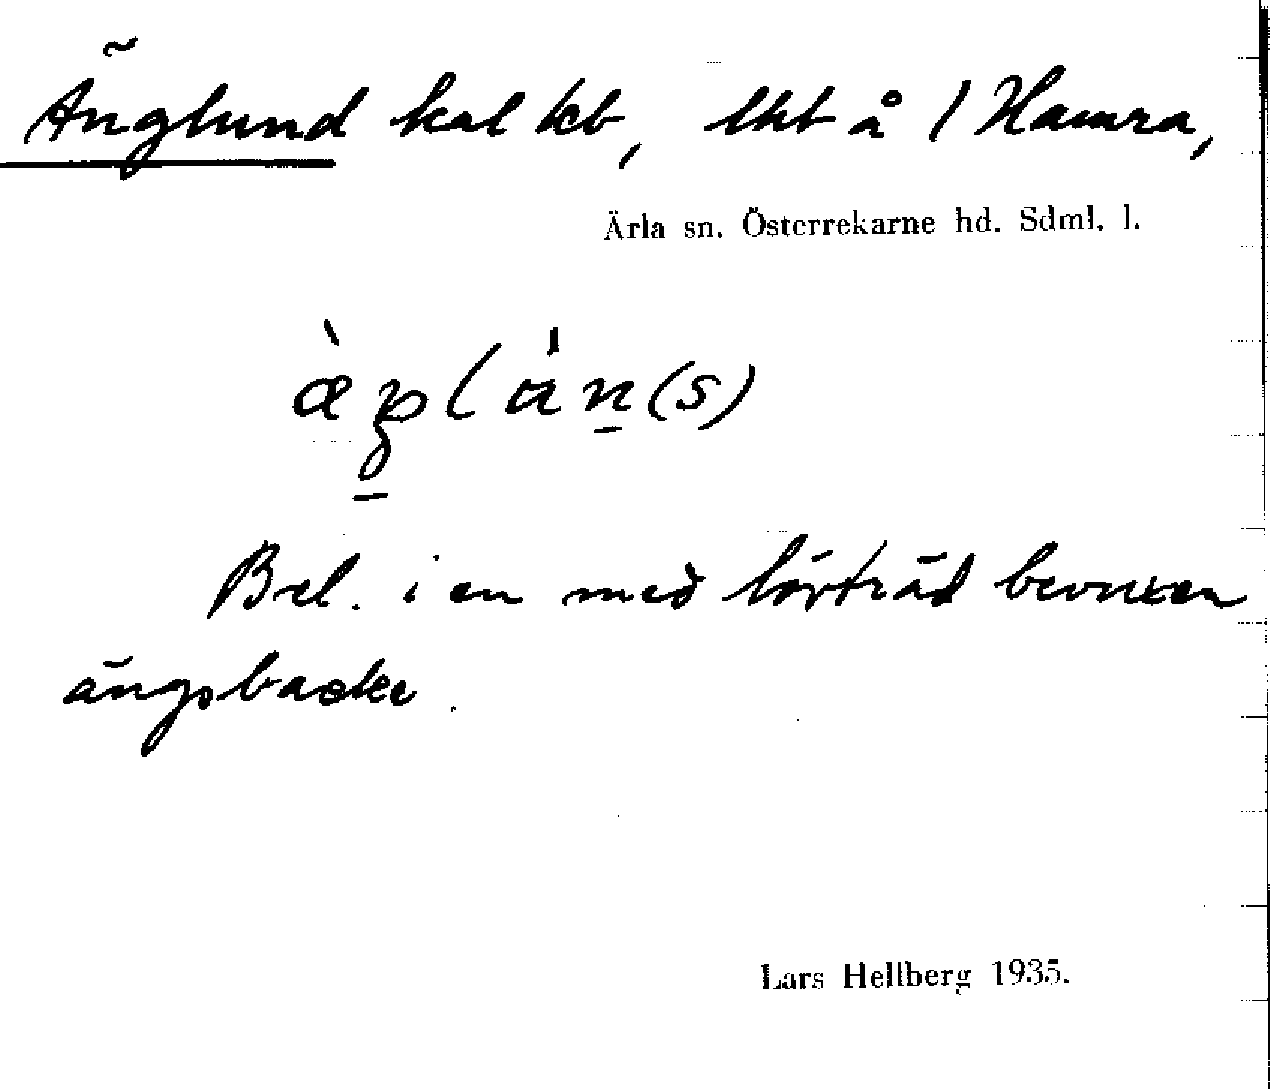 Änglund kal kb, lht å 1 Hamra,
Ärla sn. Österrekarne hd. Sdml. l.
Bel. i en med lövträd bevuxen
ängsbacke.
Lars Hellberg 1935.